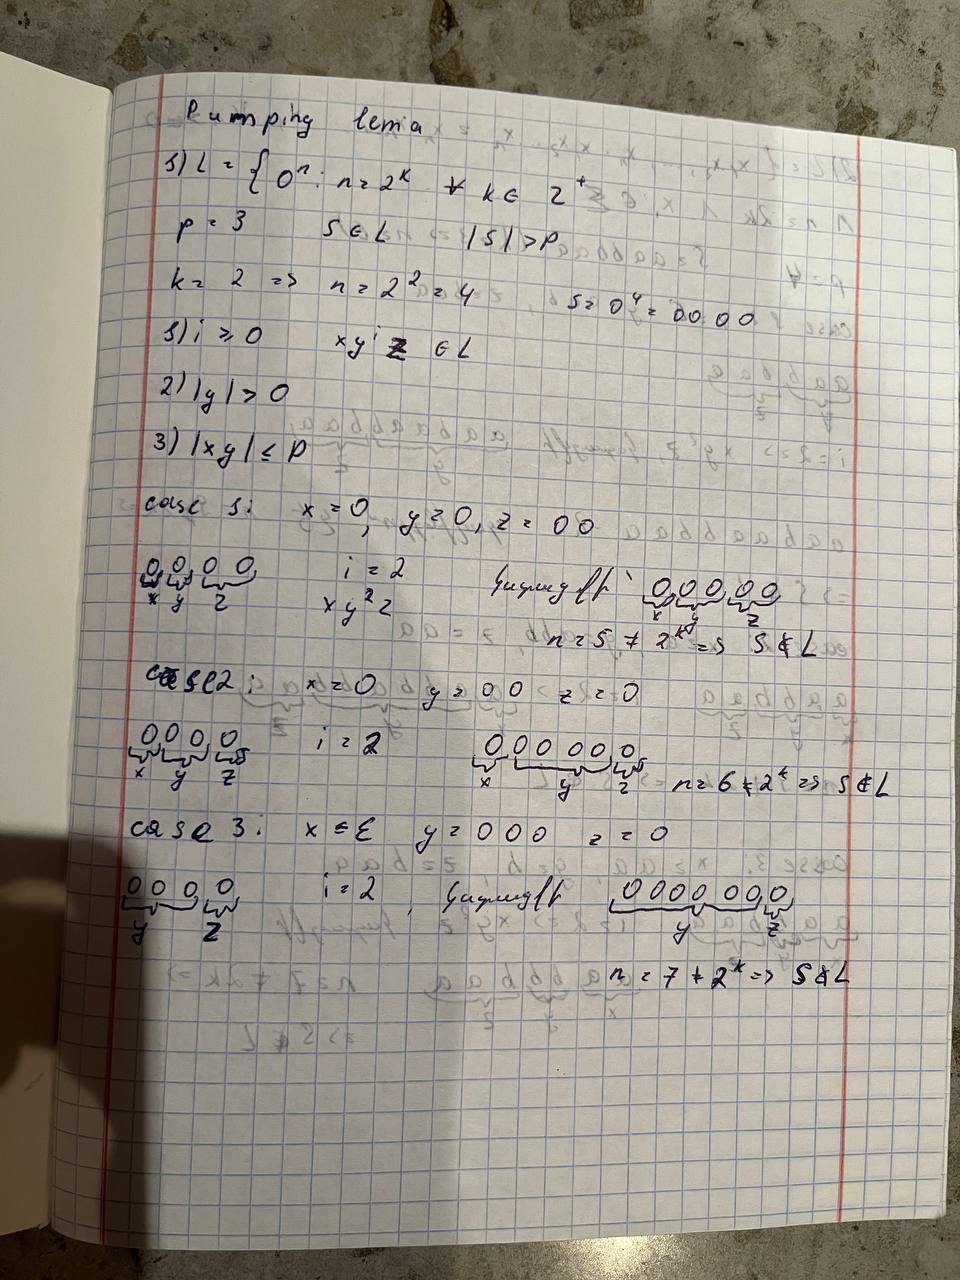 Pumping lema
1) L = { 0ⁿ : n = 2ᵏ ∀ k ∈ Z⁺
p = 3 S ∈ L |S| > P
k = 2 => n = 2² = 4 S = 0⁴ = 0000
1) i ≥ 0 xyⁱz ∈ L
2) |y| > 0
3) |xy| ≤ P
case 1: x = 0, y = 0, z = 00
0 0 0 0 i = 2 0 0 0 0 0
x y z xy²z x y z
n = 5 ≠ 2ᵏ => S ∉ L
case 2: x = 0 y = 00 z = 0
0 0 0 0 i = 2 0 0 0 0 0 0
x y z x y z n = 6 ≠ 2ᵏ => S ∉ L
case 3: x = ε y = 000 z = 0
0 0 0 0 i = 2, 0 0 0 0 0 0 0
y z y z
n = 7 ≠ 2ᵏ => S ∉ L